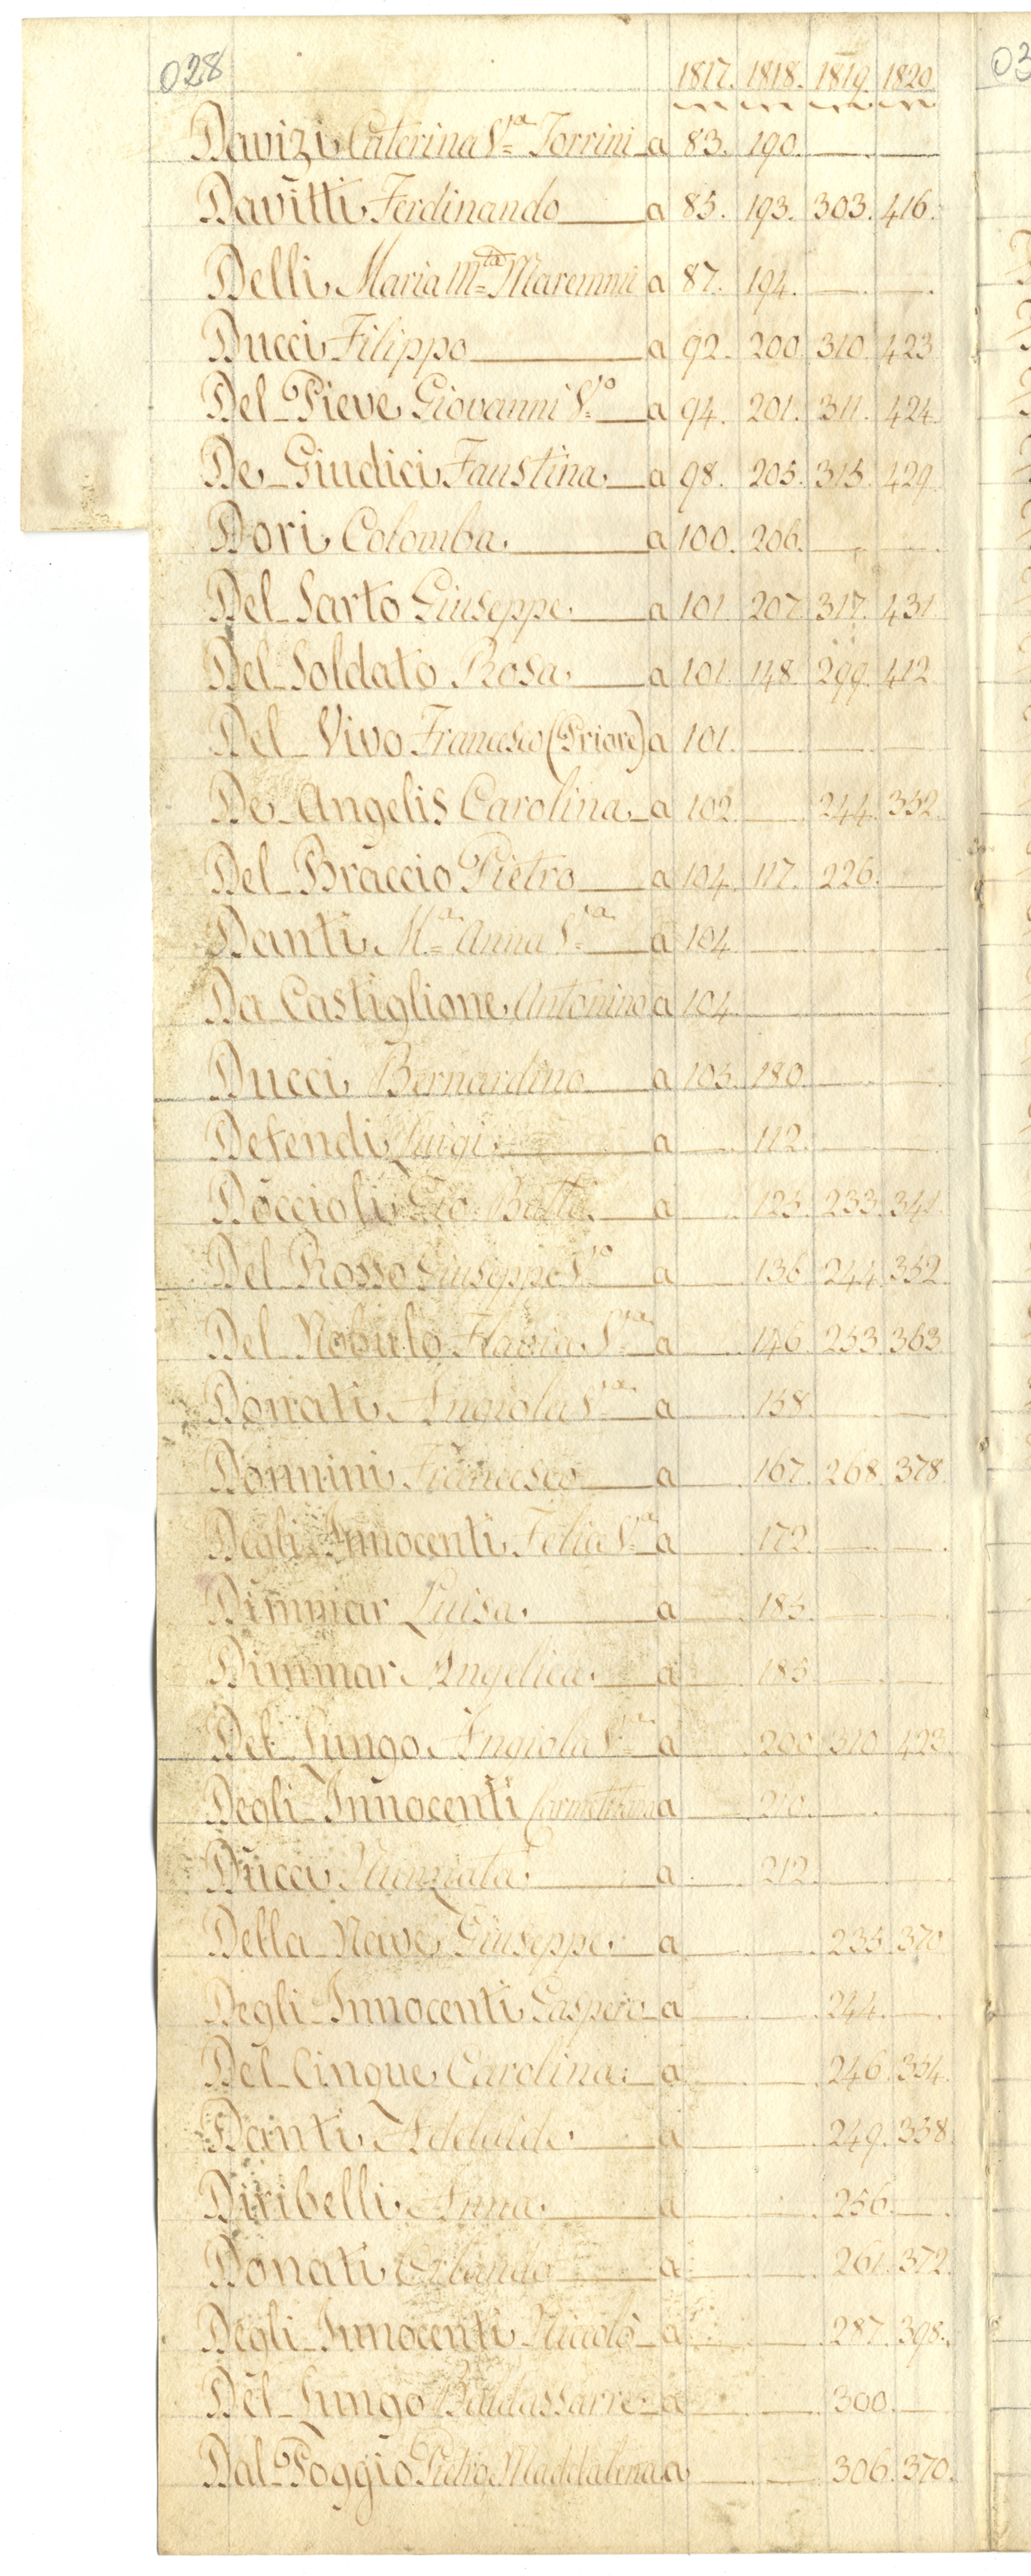 028
1817. 1818. 1819. 1820
Davizi Caterina S.ra Torrini a 83. 190.
Davitti Ferdinando a 85. 193. 303. 416.
Delli Maria M.ta Maremmi a 87. 194.
Ducci Filippo a 92. 200. 310. 423
Del-Pieve Giovanni S.o a 94. 201. 311. 424
De-Giudici Faustina a 98. 205. 315. 429.
Dori Colomba a 100. 206.
Del-Sarto Giuseppe a 101. 207. 317. 431
Del-Soldato Rosa a 101. 148. 299. 412
Del-Vivo Francesco (Priore) a 101.
De-Angelis Carolina a 102. 244. 352.
Del-Braccio Pietro a 104. 117. 226.
Danti M.a Anna S.ra a 104
Da-Castiglione Antonino a 104.
Ducci Bernardino a 105. 180.
Defendi Luigi a 112.
Doccioli Gio. Batta a 125. 233. 341.
Del-Rosso Giuseppe S.o a 136. 244. 352
Del-Nobulo Flavia S.ra a 146. 253. 363.
Donati Angiola S.ra a 158.
Donnini Francesco a 167. 268. 378.
Degli-Innocenti Felice S.ra a 172.
Dimmar Luisa a 185.
Dimmar Angelica a 185
Del-Lungo Angiola S.ra a 200. 310. 423.
Degli-Innocenti a 210.
Ducci Nunziata a 212.
Della-Nave Giuseppe a 235. 370
Degli-Innocenti Gaspero a 244.
Del-Cinque Carolina a 246. 354.
Danti Adelaide a 249. 358.
Diribelli Anna a 256.
Donati Orlando a 261. 372.
Degli-Innocenti Niccolò a 287. 398.
Del-Lungo Baldassarre a 300.
Dal-Poggio Pietro Maddalena a 306. 370.
03